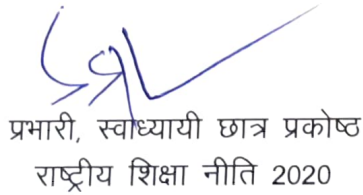 प्रभारी, स्वाध्यायी छात्र प्रकोष्ठ
राष्ट्रीय शिक्षा नीति 2020